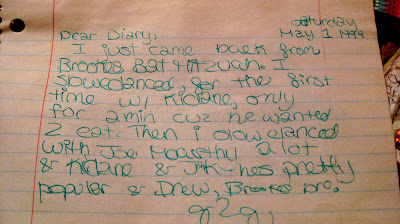 Saturday
May 1 1999
Dear Diary,
I just came back from
Brookes Bat Mitzvah. I
slowdanced, for the first
time w/ Kidane, only
for 2 min cuz he wanted
2 eat. Then i slowdanced
with Joe a lot
& Kidane & hes pretty
popular & Drew, Brookes bro.
g2g,